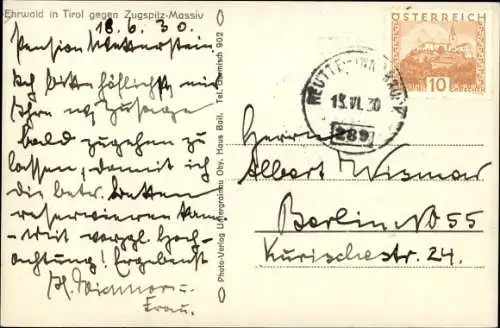 Ehrwald in Tirol gegen Zugspitz-Massiv
18.6.30.
Pension Wetterstein.
Ich bitte höflichst mir
Ihre w. Zusage
bald zugehen zu
lassen, damit ich
die betr. Betten
reservieren kann.
Mit vorzgl. Hoch-
achtung! Ergebenst
Frau.
Photo-Verlag Untergrainau Oby. Haus Bail. Tel. Garmisch 902
ÖSTERREICH
10
REUTTE
15.VI.30
289
Herrn
Albert Wismar
Berlin NO 55
Kurischestr. 24.